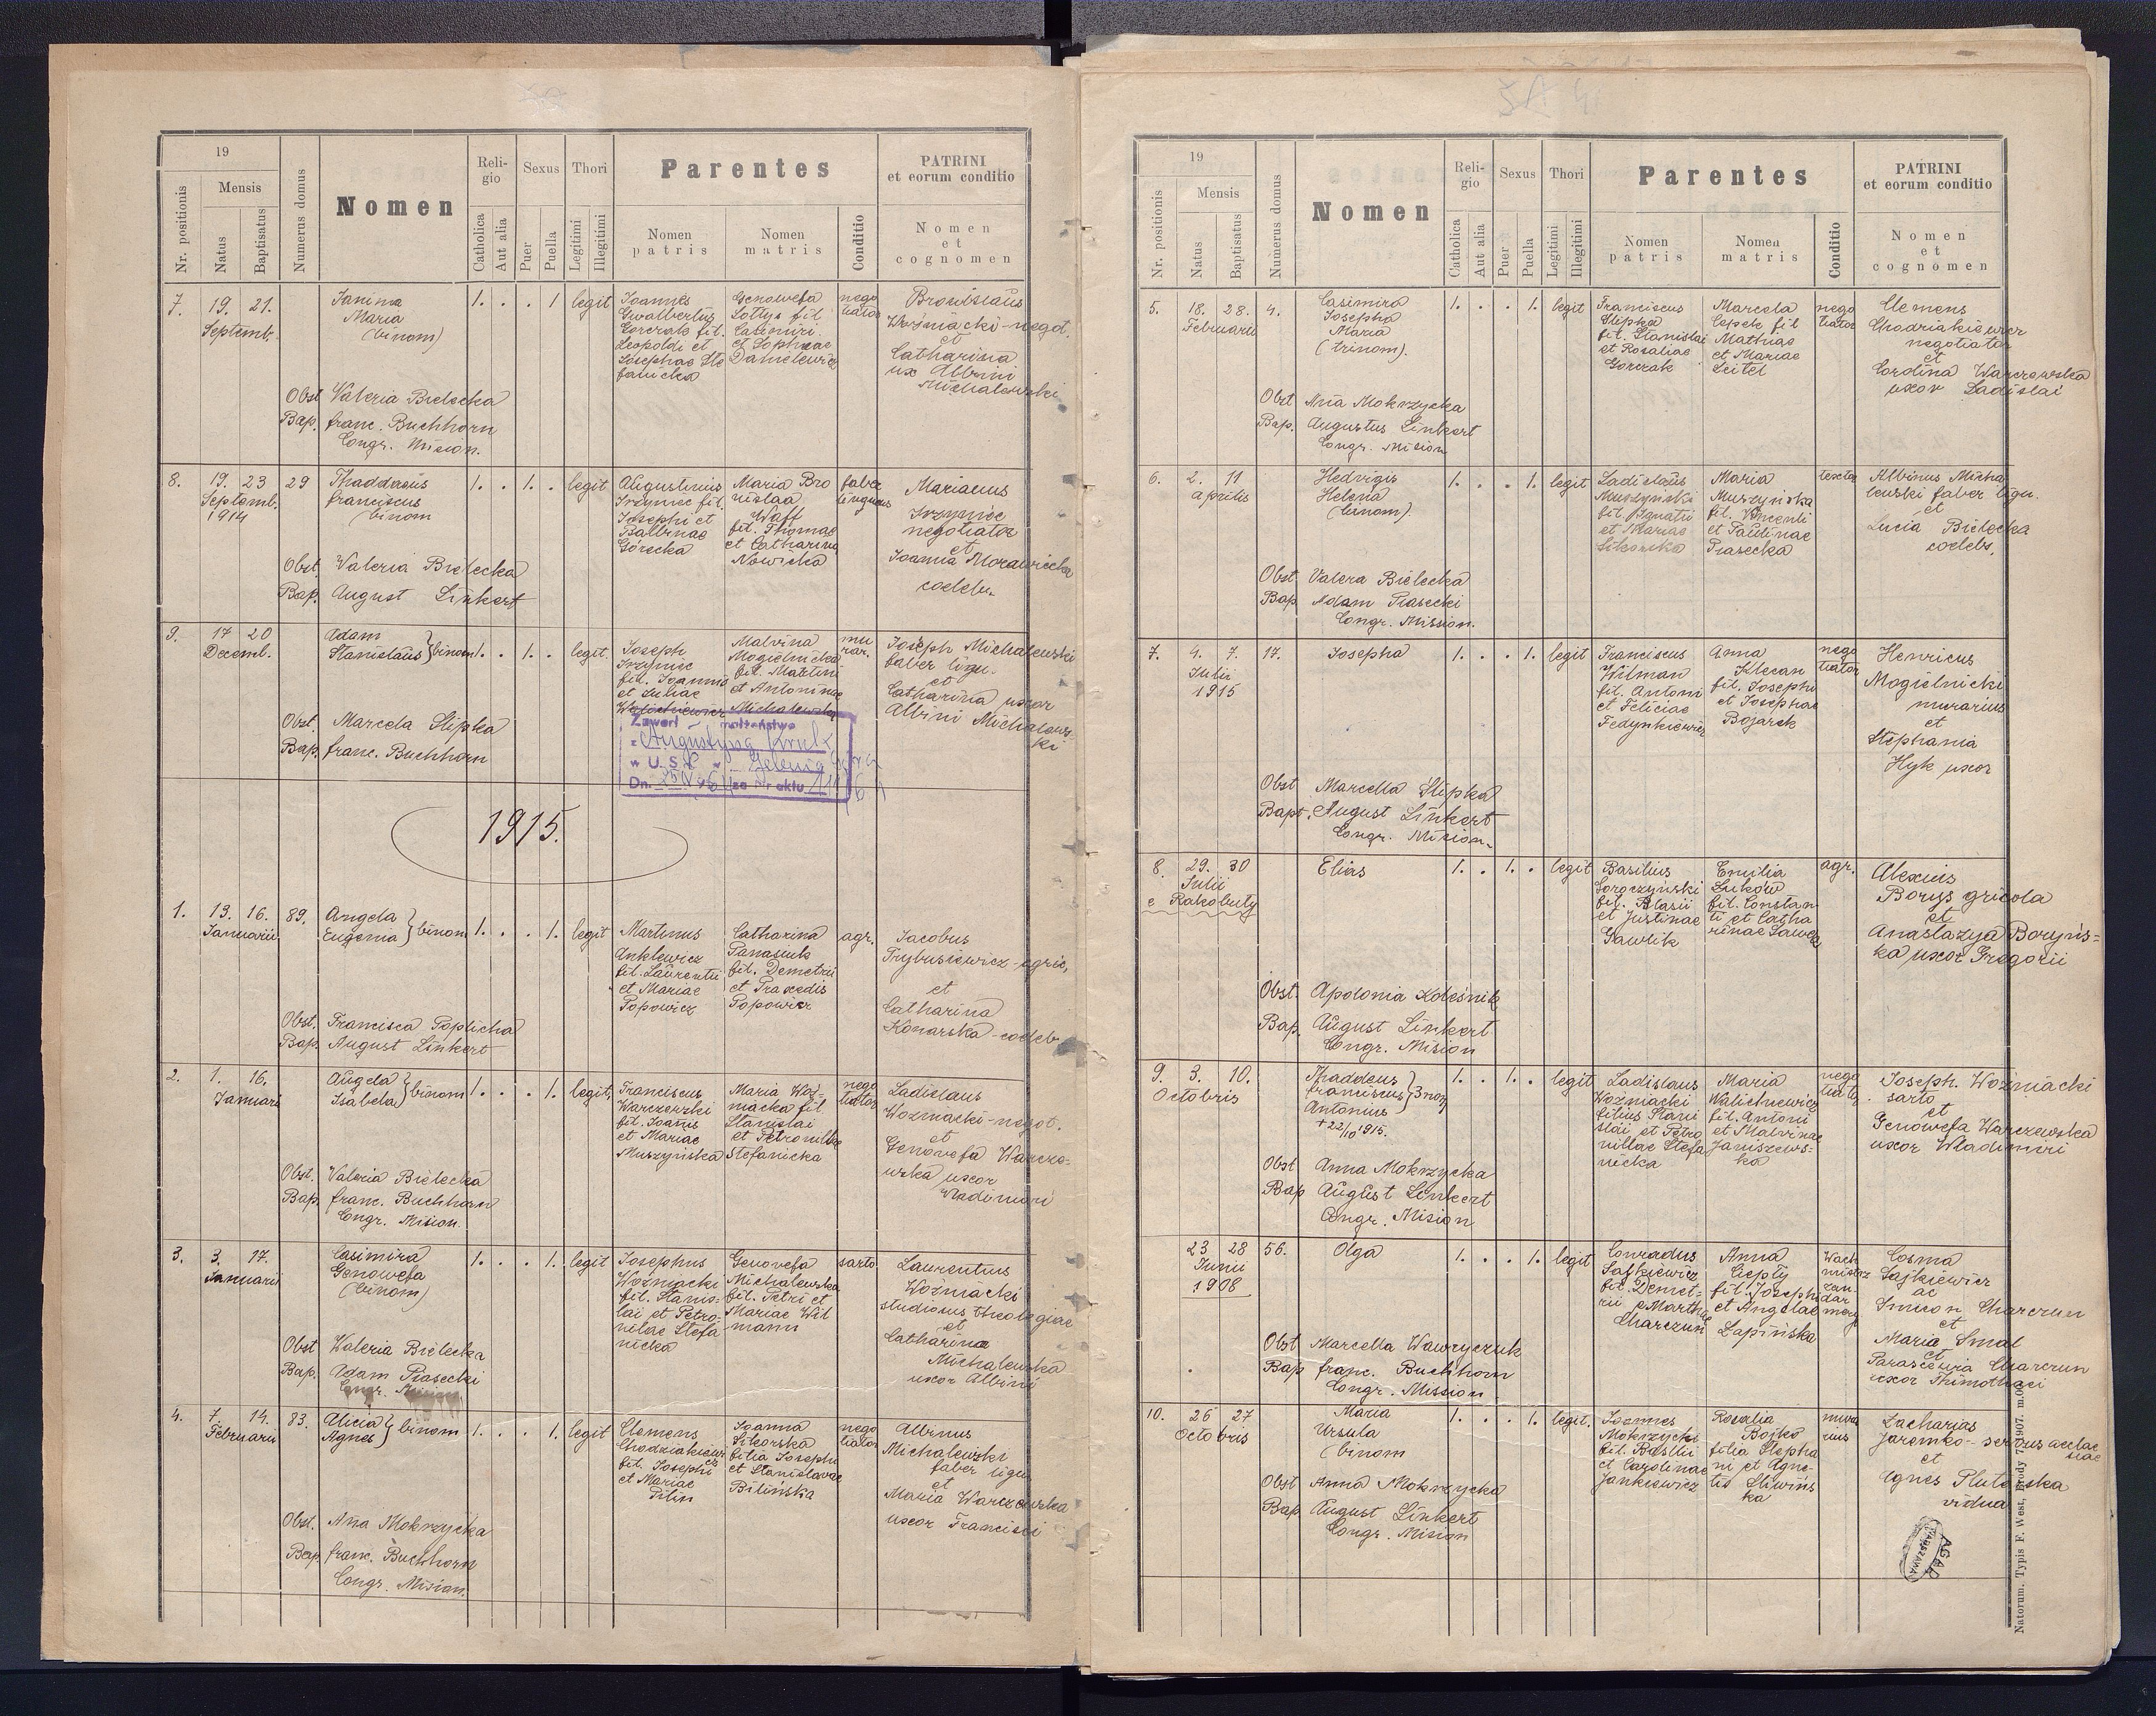 19
Nr. positionis
Mensis
Natus
Baptisatus
Numerus domus
Nomen
Religio
Catholica
Aut alia
Sexus
Puer
Puella
Thori
Legitimi
Illegitimi
Parentes
Nomen patris
Nomen matris
Conditio
PATRINI
et eorum conditio
Nomen
et
cognomen
7. 19. 21. Septemb.
Janina
Maria
(binom)
1. . . 1 legit
Joannes
Gwalbertus
Gorczak fil.
Leopoldi et
Josephae Ste
fanicka
Genowefa
Soltys fil
Casimiri
et Sophiae
Danielewicz
nego
tiator
Bronislaus
Woźniacki-negot.
et
Catharina
ux Albini
Michalewski
Obst Valeria Bielecka
Bap. franc. Buchhorn
Congr. Mision.
8. 19. 23 29
Septemb.
1914
Thaddaeus
franciscus
binom
1. . 1. . legit
Augustinus
Trzyniec fil.
Josephi et
Balbinae
Górecka
Maria Bro
nislaa
Waff
fil. Thomae
et Catharina
Nowicka
faber
lingneus
Marianus
Trzyniec
negotiator
et
Joanna Morawiecka
coeleb.
Obst. Valeria Bielecka
Bap. August Linkert
9. 17 20
Decemb.
Adam
Stanislaus } binom
1. . 1. . legit.
Joseph
Trzyniec
fil. Joannis
et Juliae
Walichiewicz
Malvina
Mogielnicka
fil. Martini
et Antoninae
Michalewska
mu
rar.
Joseph Michalewski
faber lign.
et
Catharina uxor
Albini Michalews-
ki
Obst. Marcela Slipka
Bap. franc. Buchhorn
Zawarł małżeństwo
z Augustyną Kruk
w U.S.C w
Dn. za Nr aktu
1915.
1. 13. 16. 89.
Januarii
Angela
Eugenia } binom
1. . . 1. legit
Martinus
Anklewicz
fil. Laurentii
et Mariae
Popowicz
Catharina
Panasiuk
fil. Demetrii
et Praxedis
Popowicz
agr.
Jacobus
Trybusiewicz-agric,
et
Catharina
Konarska-coeleb
Obst. Francisca Poplicha
Bap. August Linkert
2. 1. 16.
Januari
Angela
Isabela } binom
1. . . 1. legit,
Franciscus
Warczewski
fil. Joanis
et Mariae
Muszyńska
Maria Woź-
niacka fil.
Stanislai
et Petronillae
Stefanicka
nego
tiator
Ladislaus
Woźniacki-negot.
et
Genovefa Warcze-
wska uxor
Vladimiri
Obst. Valeria Bielecka
Bap. franc. Buchhorn
Congr. Mision.
3. 3. 17.
Januarii
Casimira
Genowefa
(binom)
1. . . 1. legit
Josephus
Woźniacki
fil. Stanis-
lai et Petro-
nilae Stefa
nicka
Genovefa
Michalewska
fil. Petri et
Mariae Wil
mann
sarto
Laurentius
Woźniacki
studiosus theologiae
et
Catharina
Michalewska
uxor Albini
Obst Waleria Bielecka
Bap. Adam Piasecki
Congr. Mision
4. 7. 14. 83.
Februarii
Alicia
Agnes } binom
1. . . 1. legit
Clemens
Chodziakiewicz
fil. Josephi
et Mariae
Pilin
Joanna
Sikorska
filia Josephi
et Stanislavae
Bilińska
nego
tiator
Albinus
Michalewski
faber lign
et
Maria Warczewska
uxor Francisci
Obst. Ana Mokrzycka
Bap. franc. Buchhorn
Congr. Mision.
19
Nr. positionis
Mensis
Natus
Baptisatus
Numerus domus
Nomen
Religio
Catholica
Aut alia
Sexus
Puer
Puella
Thori
Legitimi
Illegitimi
Parentes
Nomen patris
Nomen matris
Conditio
PATRINI
et eorum conditio
Nomen
et
cognomen
5. 18. 28. 4.
Februarii
Casimira
Josepha
Maria
(trinom).
1. . . 1. legit
Franciscus
Slipka
fil. Stanislai
et Rosaliae
Gorczak
Marcela
fil
Mathiae
et Mariae
Seitel
nego
tiator
Clemens
Chodziakiewicz
negotiator
et
Carolina Warczewska
uxor Ladislai
Obst Ana Mokrzycka
Bap. Augustus Linkert
Congr. Mision
6. 2. 11
Aprilis
Hedvigis
Helena
(binom).
1. . . 1. legit
Ladislaus
Muszyński
fil. Ignatii
et Mariae
Sikorska
Maria
Muszyńska
fil. Vincenti
et Paulinae
Piasecka
textor
Albinus Micha
lewski faber lign.
et
Lucia Bielecka
coelebs.
Obst. Valera Bielecka
Bap. Adam Piasecki
Congr. Mission.
7. 4. 7. 17.
Julii
1915
Josepha
1. . . 1. legit
Franciscus
Wilman
fil. Antoni
et Feliciae
Fedynkiewicz
Anna
Klecan
fil. Josephi
et Josephae
Bojarek
nego
tiator
Henricus
Mogielnicki
murarius
et
Stephania
Hyk uxor
Obst Marcella Slipka
Bapt. August Linkert
Congr. Mision.
8. 29. 30
Julii
e Rakobuty
Elias
1. . 1. . legit
Basilius
Soroczyński
fil. Blasii
et Justinae
Gawlik
Emilia
Luków
fil. Constan
ti et Catha
rinae Sawka
agr.
Alexius
Borys gricola
et
Anastazya Boryńs=
ka uxor Gregorii
Obst. Apolonia Koleśnik
Bap. August Linkert
Congr. Mision
9. 3. 10.
Octobris
Thaddeus
franciscus
Antonius } 3 nom
+ 22/10 1915.
1. . 1. . legit
Ladislaus
Woźniacki
filius Stani
slai et Petro
nillae Stefa
nicka
Maria
Walichiewicz
fil. Antoni
et Malvinae
Janiszews-
ka
nego
tiator
Joseph. Woźniacki
sarto
et
Genowefa Warczewska
uxor Wladimiri
Obst Anna Mokrzycka
Bap August Linkert
Congr. Mision
23 28 56.
Junii
1908
Olga
1. . . 1. legit
Conradus
Sajkiewicz
fil. Demet-
rii Martha
Charczun
Anna
Ciepły
fil. Josephi
et Angelae
Łapińska
Wach
mistrz
żan-
dar
mery
Cosma
Sajkiewicz
ac
Simeon Charczun
et
Maria Smal
et
Parascewia Charczun
uxor Thimothaei
Obst Marcella Wawryczuk
Bap franc. Buchhorn
Congr. Mission.
10. 26 27
Octobris
Maria
Ursula
(binom
1. . . 1. legit.
Joannes
Mokrzycki
fil. Basilii
et Carolinae
Jankiewicz
Rosalia
Bojko
filia Stepha
ni et Agne-
tis Śliwińs
ka
mura
rius
Zacharias
Jaremko-servus eccle
siae
et
Agnes Plutowska
vidua
Obst Anna Mokrzycka
Bap. August Linkert
Congr. Mision
AGAD
WARSZAWA
Natorum. Typis F. West, Brody 7 1907. m.o.